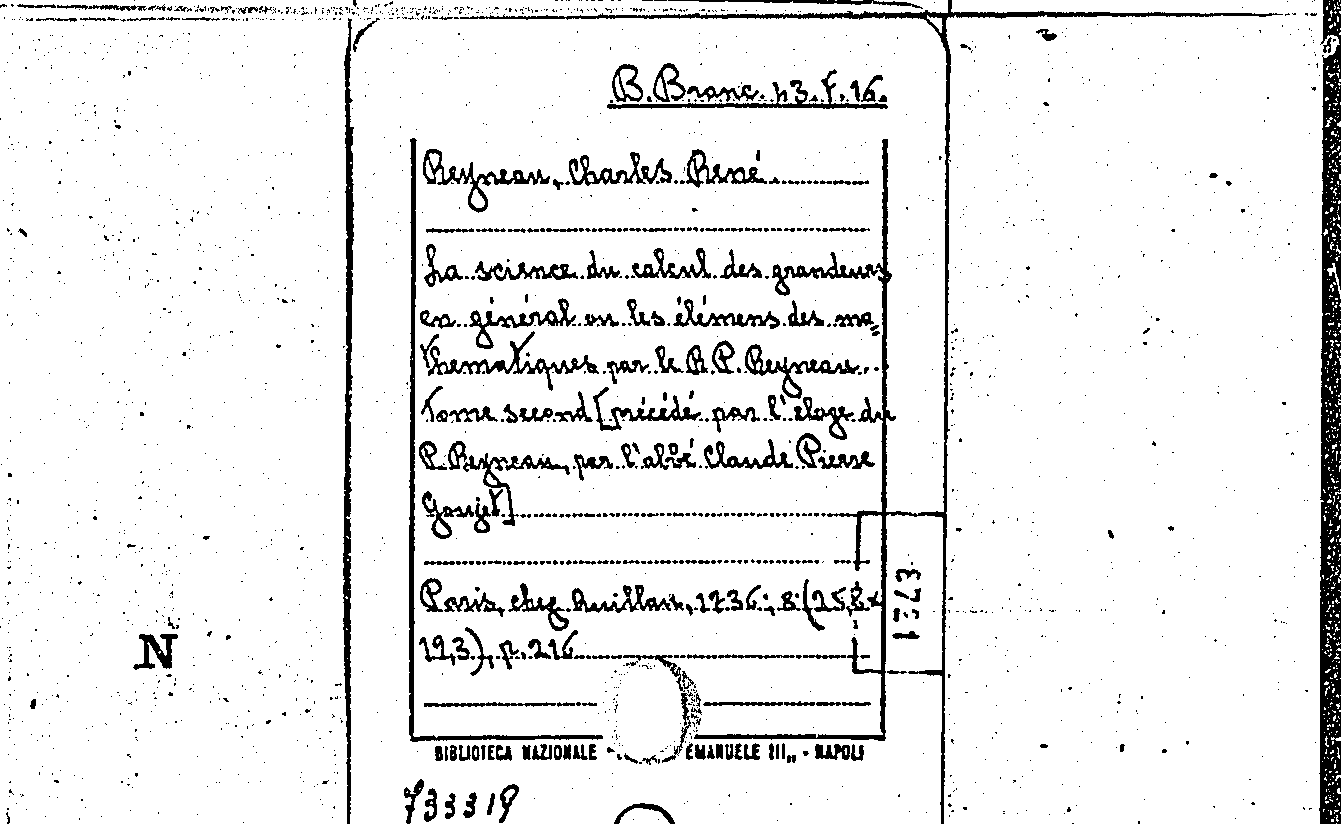 B. Branc. 43. F. 16.
Reyneau, Charles René.
La science du calcul des grandeurs
en général ou les élémens des ma=
thematiques par le R. P. Reyneau...
Tome second [précédé par l'éloge du
P. Reyneau, par l'abbé Claude Pierre
Goujet]
Paris, chez Quillau, 1736; 8.(25,8x
19,3), p. 216
1373
N
BIBLIOTECA NAZIONALE " EMANUELE III„ - NAPOLI
733319